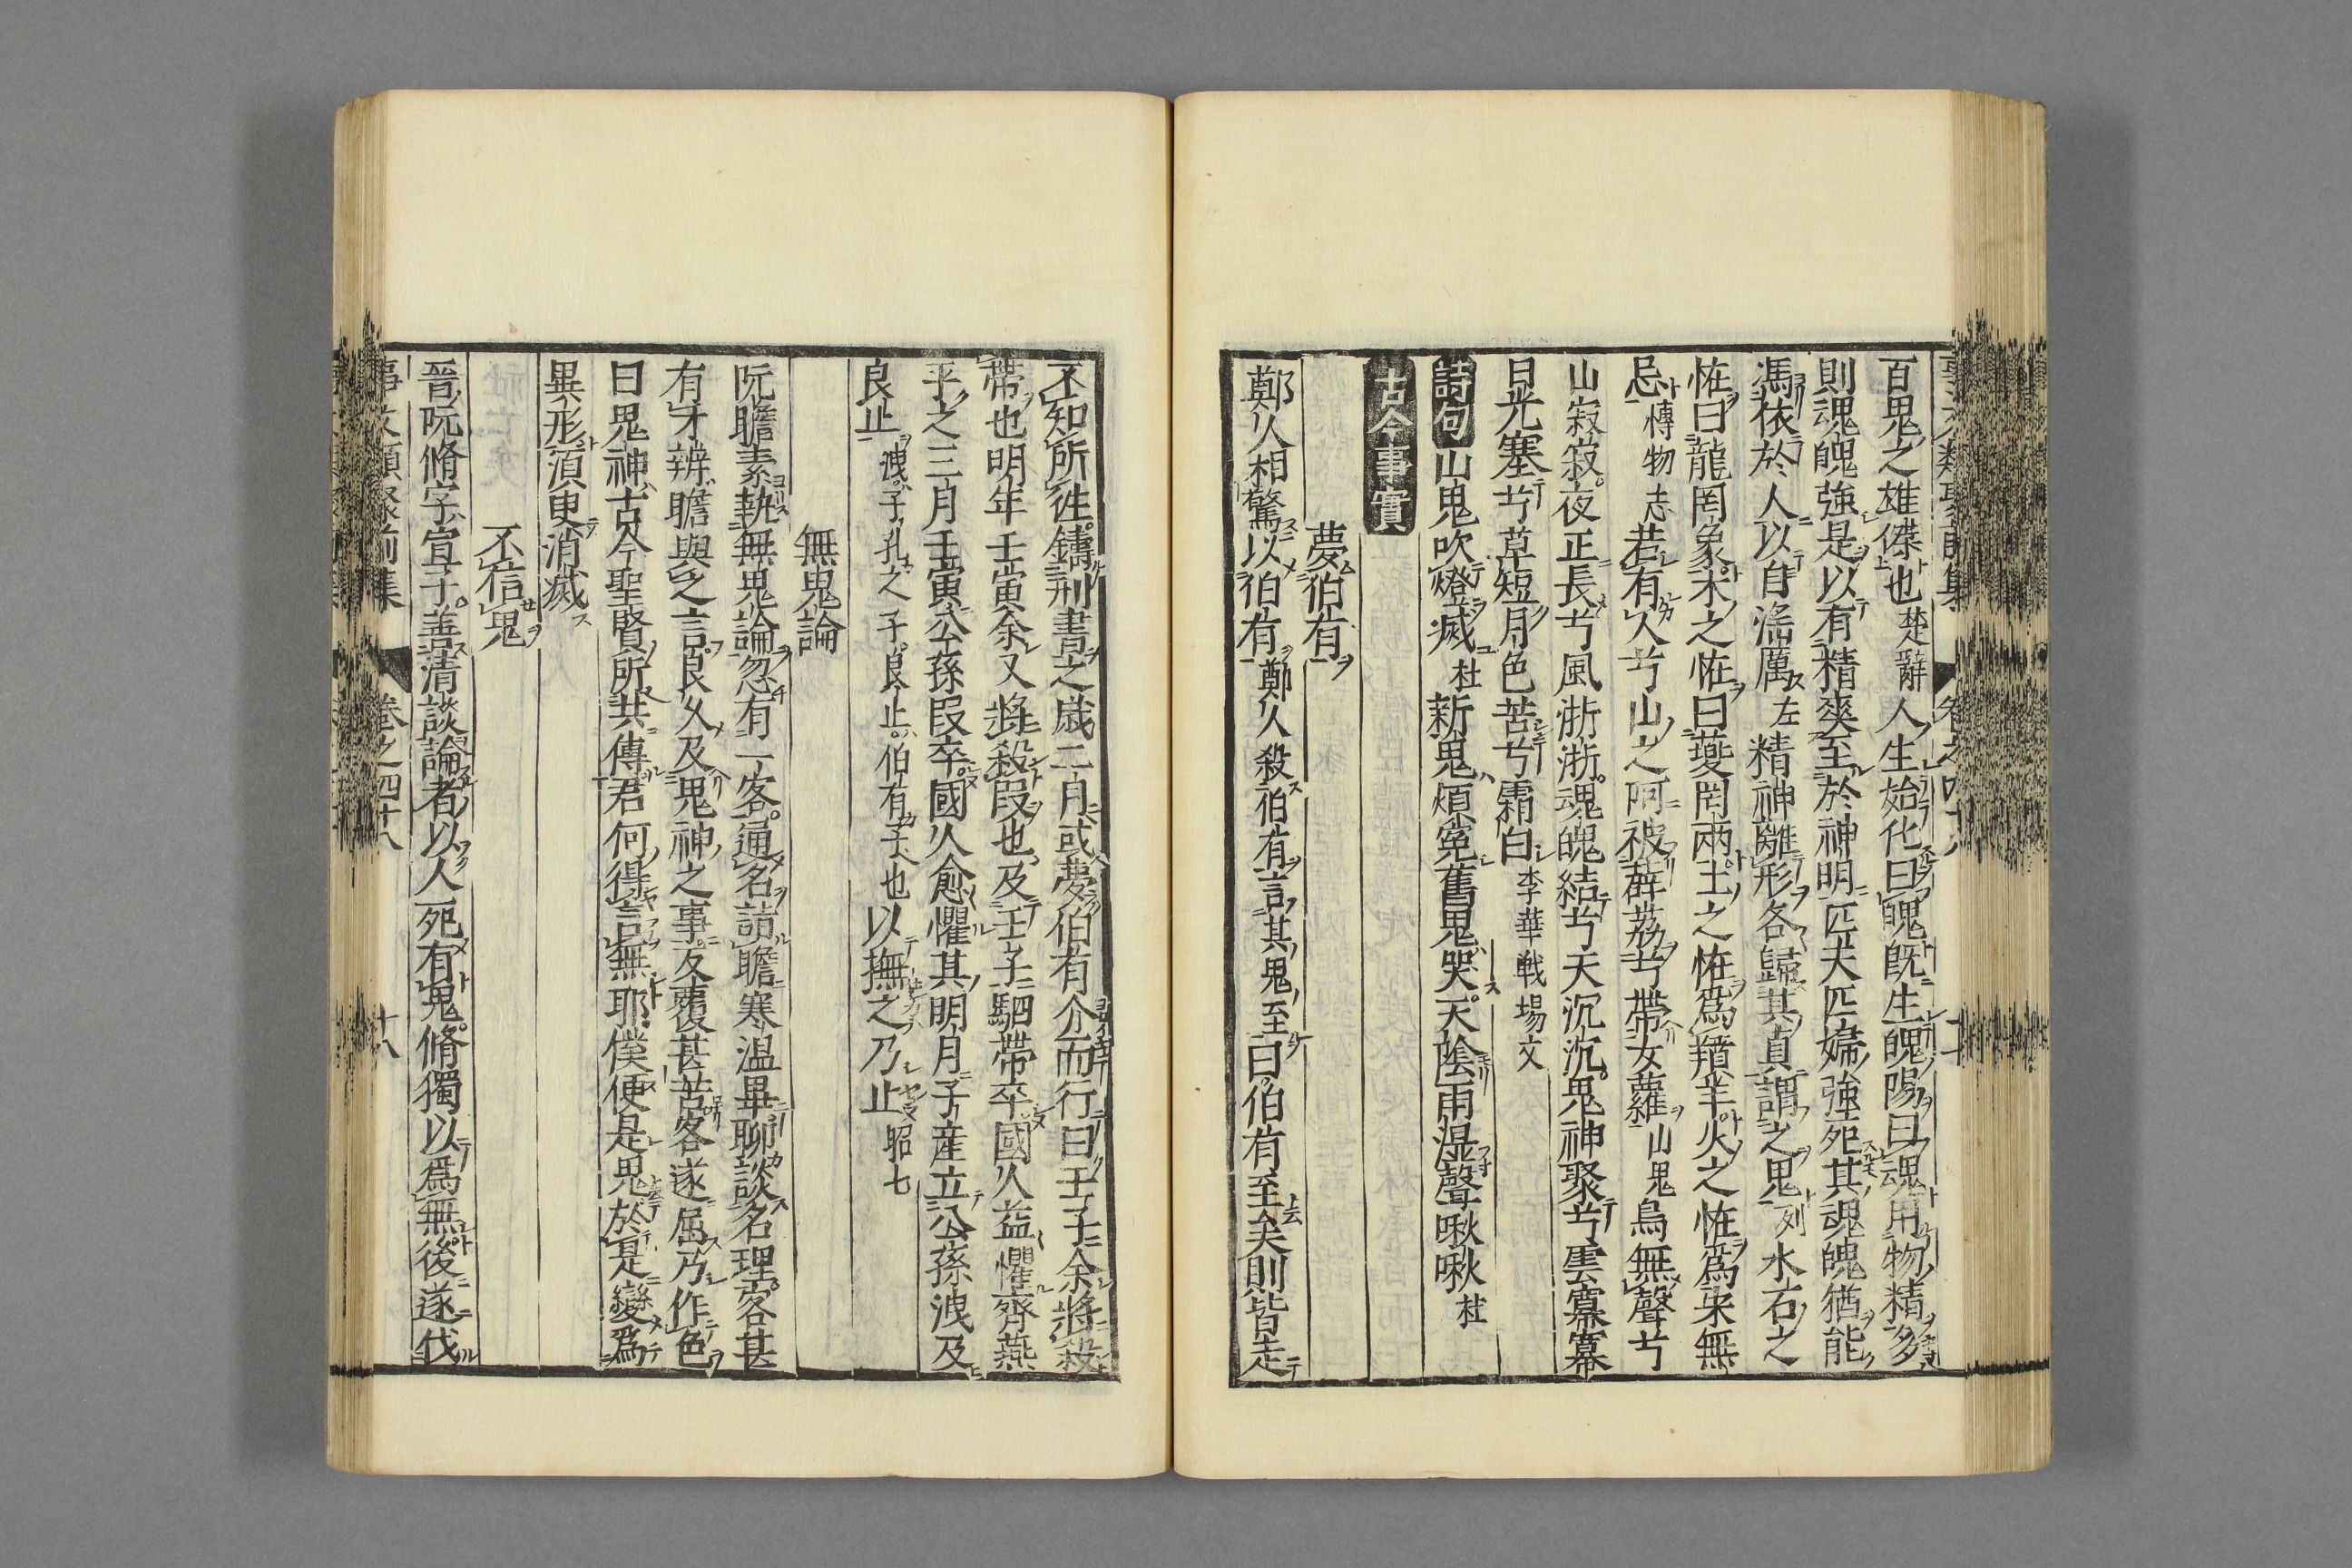 百鬼之雄傑也楚辭人生始化曰魄既生魄陽曰魂用物精多
則魂魄強是以有精爽至於神明匹夫匹婦強死其魂魄猶能
馮依於人以自滛厲左精神離形各歸其真謂之鬼列水石之
恠曰龍罔象木之恠曰夔罔兩土之恠為羵羊火之恠為宋無
忌博物志若有人兮山之阿被薜荔兮帶女蘿山鬼鳥無聲兮
山寂寂夜正長兮風淅淅魂魄結兮天沉沉鬼神聚兮雲冪冪
日光塞兮草短月色苦兮霜白李華戰場文
詩句山鬼吹燈滅杜新鬼煩寃舊鬼哭天陰雨湿聲啾啾杜
古今事實
夢伯有
鄭人相驚以伯有鄭人殺伯有言其鬼至曰伯有至矣則皆走
不知所徃鑄刑書之歳二月或夢伯有介而行曰壬子余將殺
帶也明年壬寅余又將殺段也及壬子駟帶卒國人益懼齊燕
平之三月壬寅公孫段卒國人愈懼其明月子産立公孫洩及
良止洩子孔之子良止伯有子也以撫之乃止昭七
無鬼論
阮瞻素執無鬼論忽有一客通名詣瞻寒温畢聊談名理客甚
有才辨瞻與之言良久及鬼神之事反覆甚苦客遂屈乃作色
曰鬼神古今聖賢所共傳君何得言無耶僕便是鬼於是變為
異形須臾消滅
不信鬼
晉阮脩字宣子善清談論者以人死有鬼脩獨以為無後遂伐
事文類聚前集 卷之四十八 十八